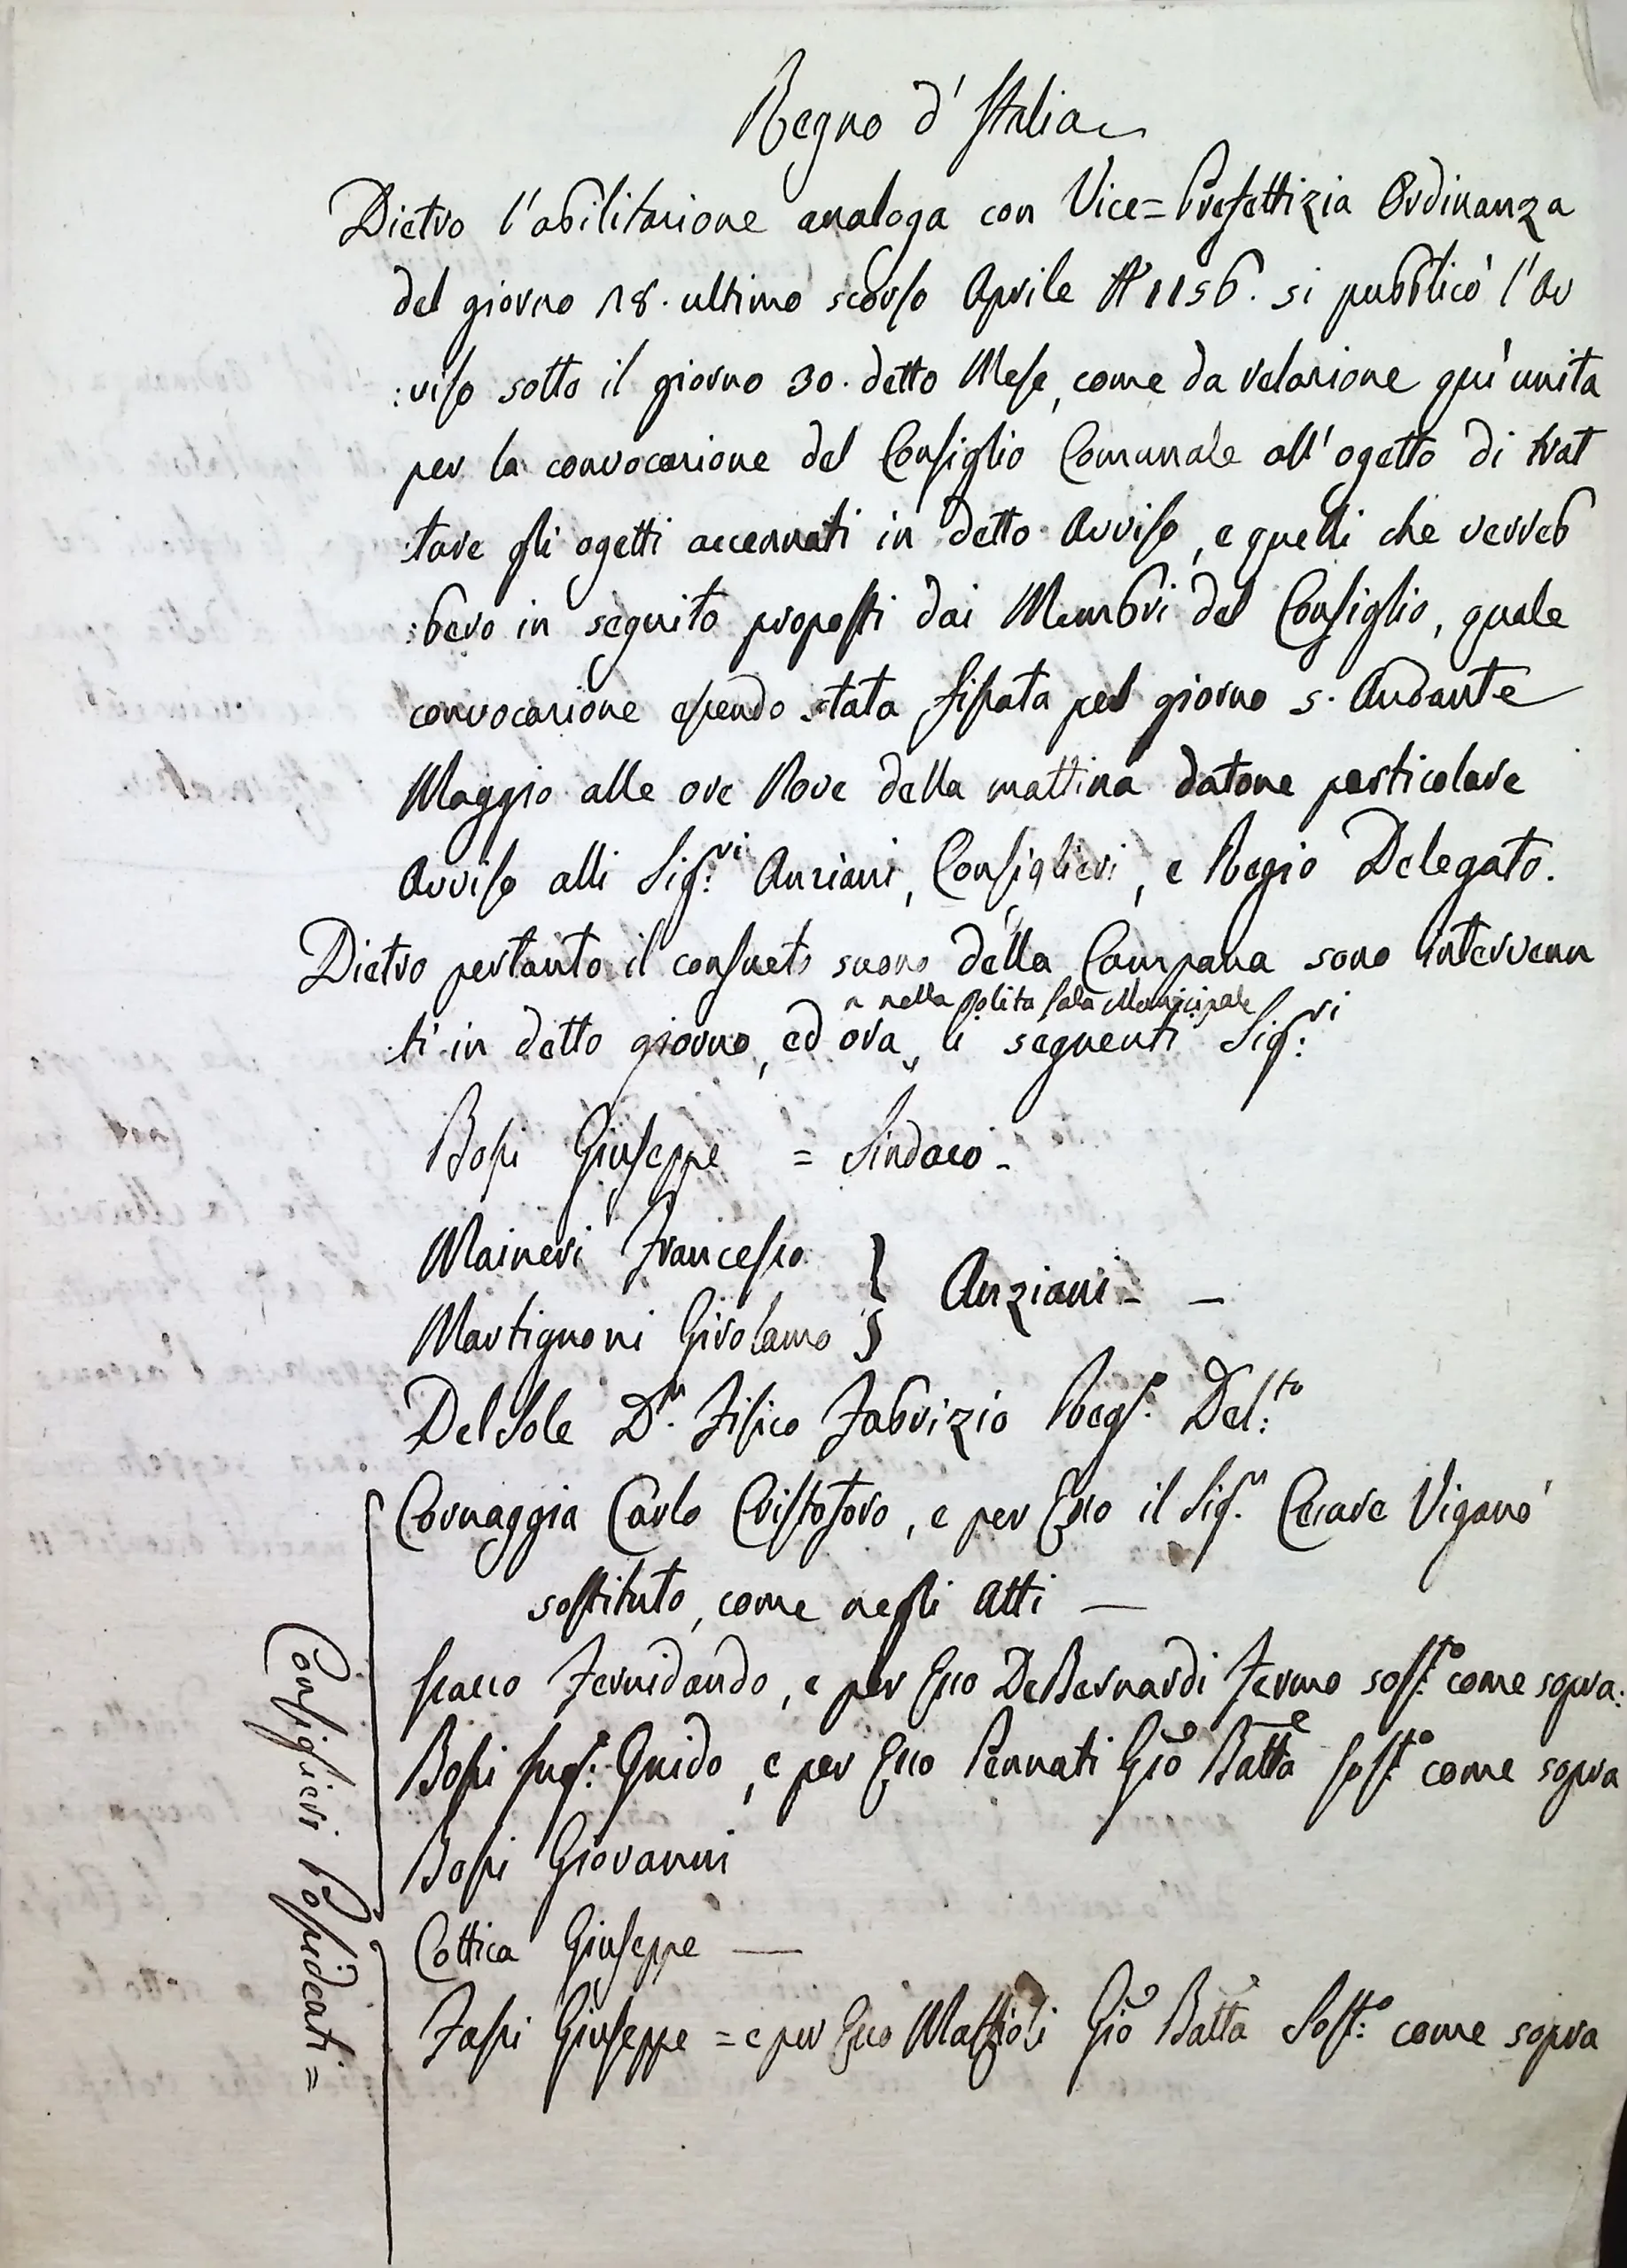 Regno d'Italia
Dietro l'abilitazione analoga con Vice=Prefettizia Ordinanza
del giorno 18. ultimo scorso Aprile N° 1156. si pubblicò l'Av
:viso sotto il giorno 30. detto Mese, come da relazione quì unita
per la convocazione del Consiglio Comunale all'ogetto di trat
:tare gli ogetti accennati in detto Avviso, e quelli che verreb
:bero in seguito proposti dai Membri del Consiglio, quale
convocazione essendo stata fissata pel giorno 5. Andante
Maggio alle ore Nove della mattina datone particolare
Avviso alli Sig:ri Anziani, Consiglieri, e Regio Delegato.
Dietro pertanto il consueto suono della Campana sono intervenu
nella solita Sala Municipale
:ti in detto giorno, ed ora, li seguenti Sig:ri
Bossi Giuseppe = Sindaco -
Maineri Francesco
Martignoni Girolamo } Anziani - -
Del Sole D.r Fisico Fabrizio Reg.o Del:to
Cornaggia Carlo Cristoforo, e per Esso il Sig.r Cesare Viganò
sostituto, come negli Atti —
Sacco Fernidando, e per Esso DeBernardi Fermo sost.to come sopra:
Bossi Guido, e per Esso Pennati Gio Batta Sost.to come sopra
Bossi Giovanni
Cottica Giuseppe —
Fassi Giuseppe = e per Esso Maffioli Gio Batta Sost:o come sopra
Consiglieri Possidenti =